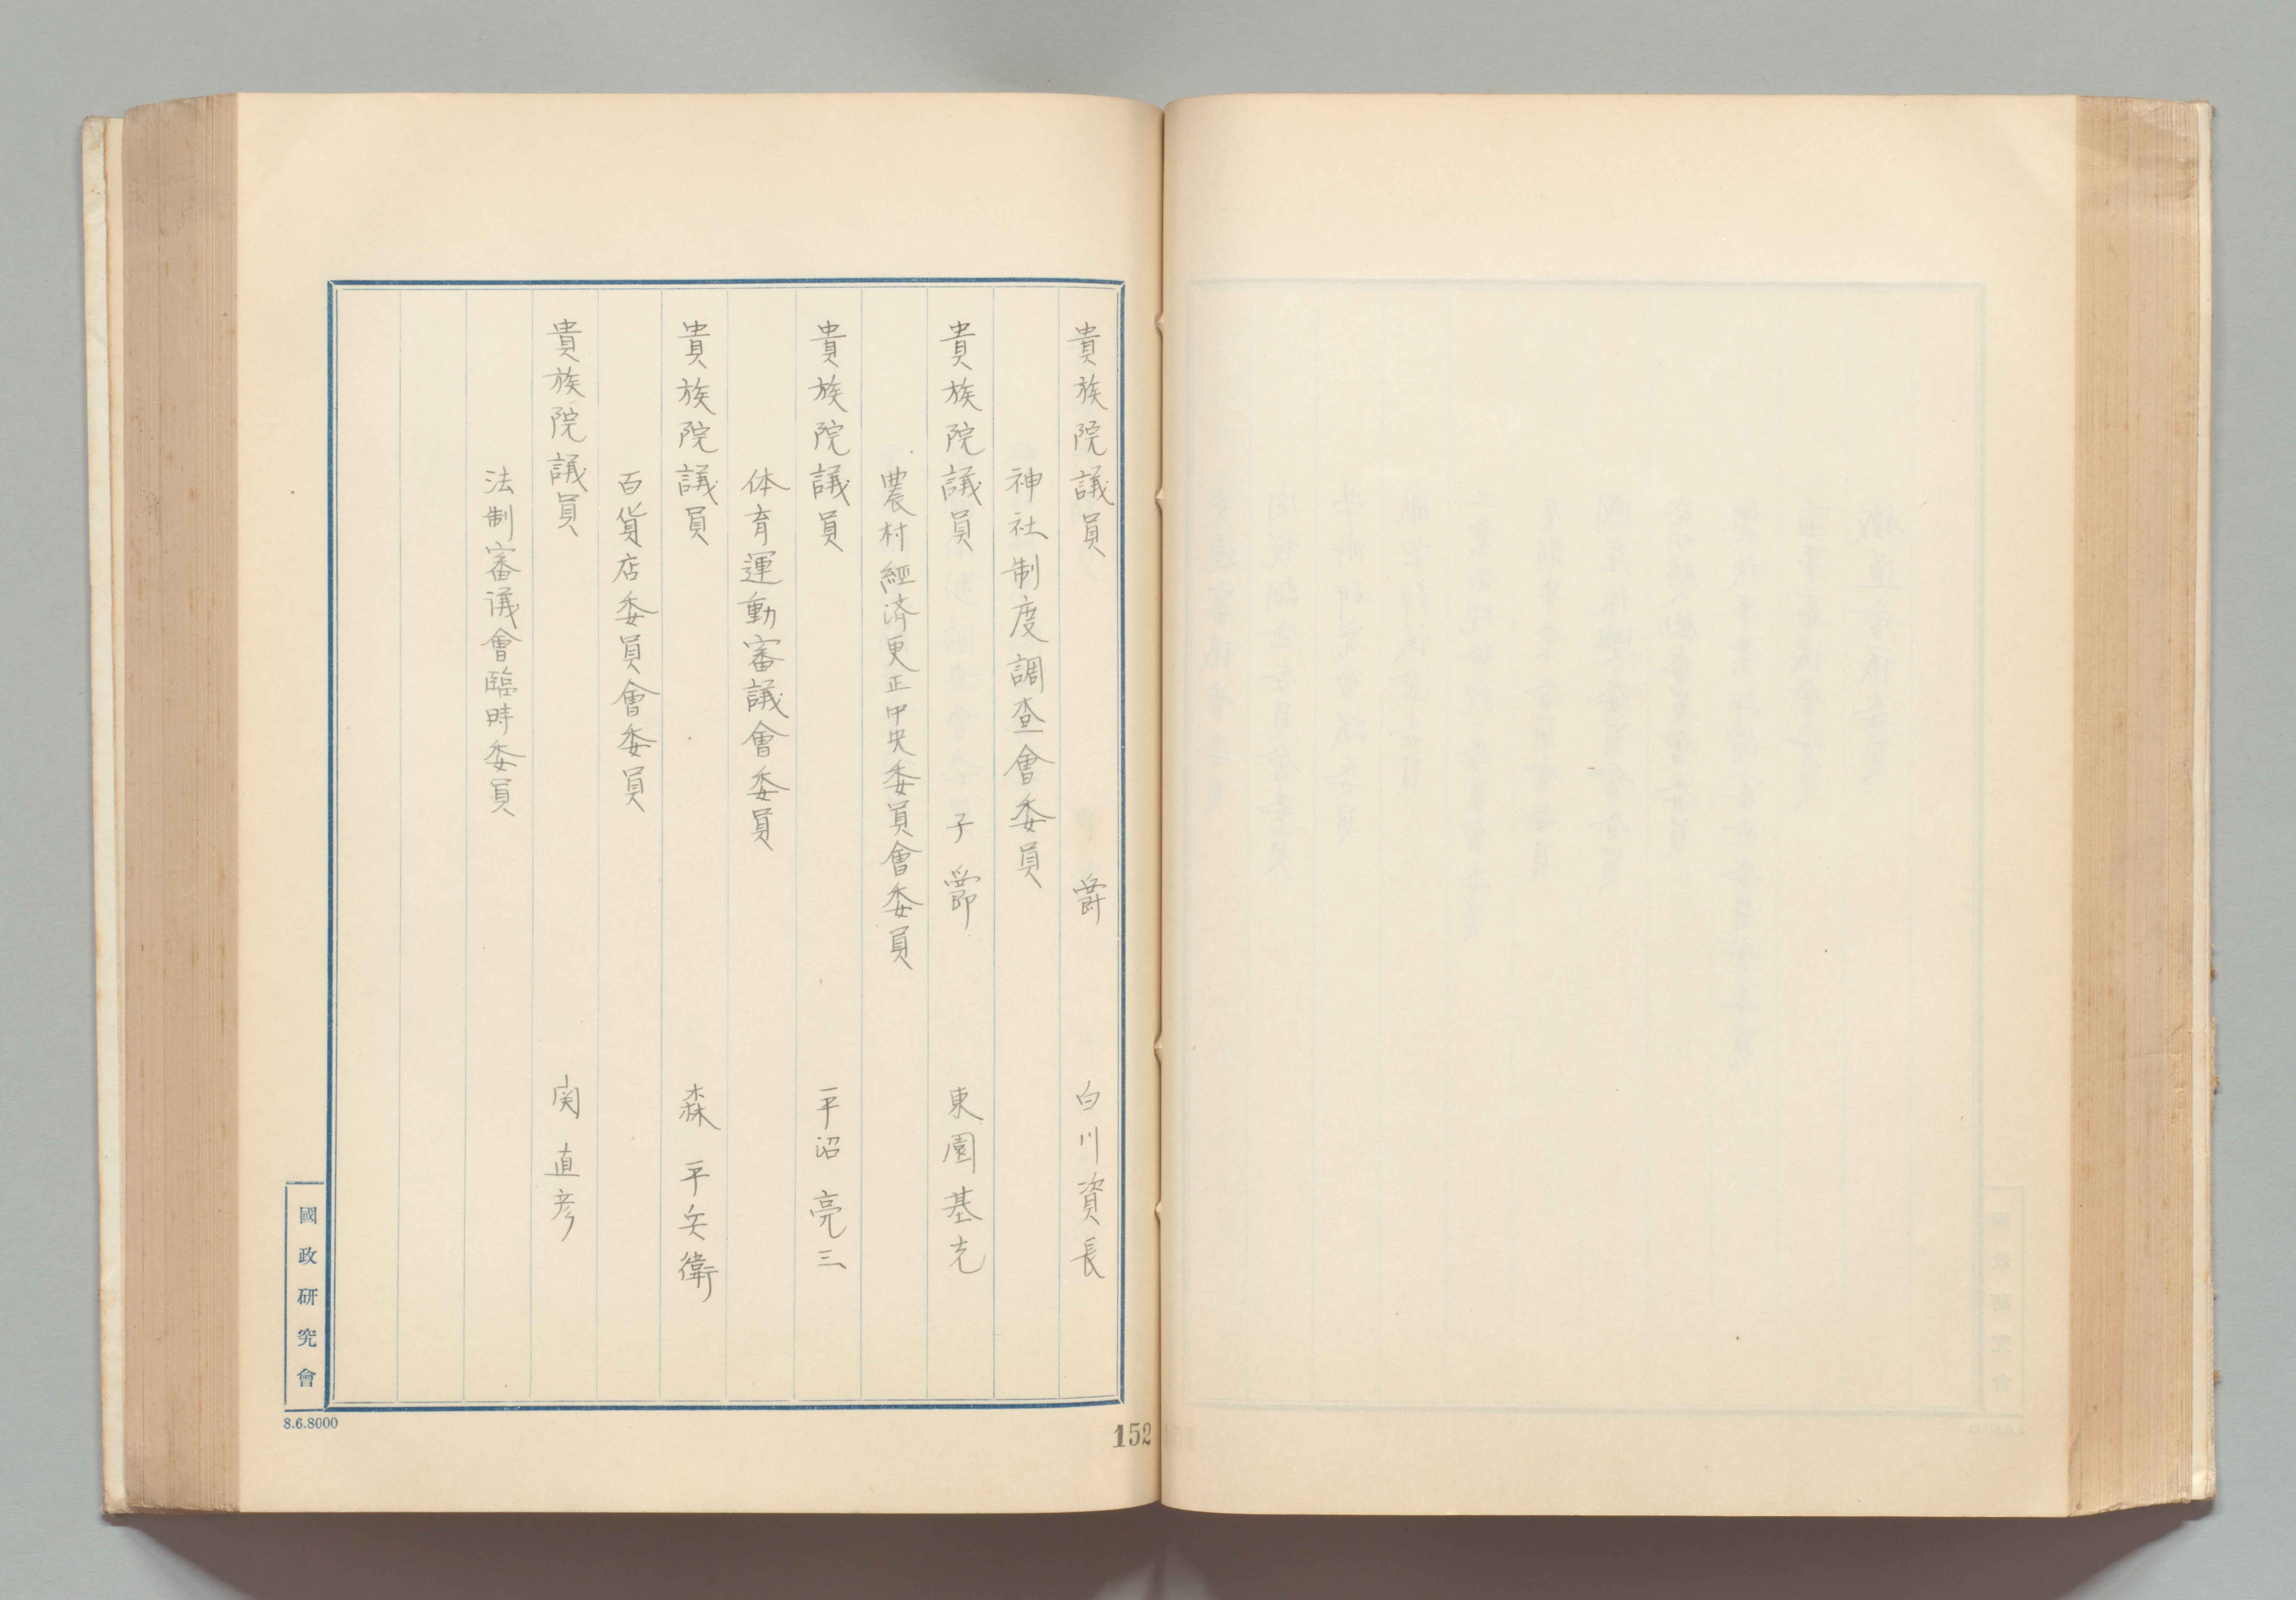 貴族院議員 爵 白川資長
神社制度調査會委員
貴族院議員 子爵 東園基光
農村経済更正中央委員會委員
貴族院議員 平沼亮三
体育運動審議會委員
貴族院議員 森平兵衛
百貨店委員會委員
貴族院議員 関直彦
法制審議會臨時委員
國政研究會
8.6.8000
152